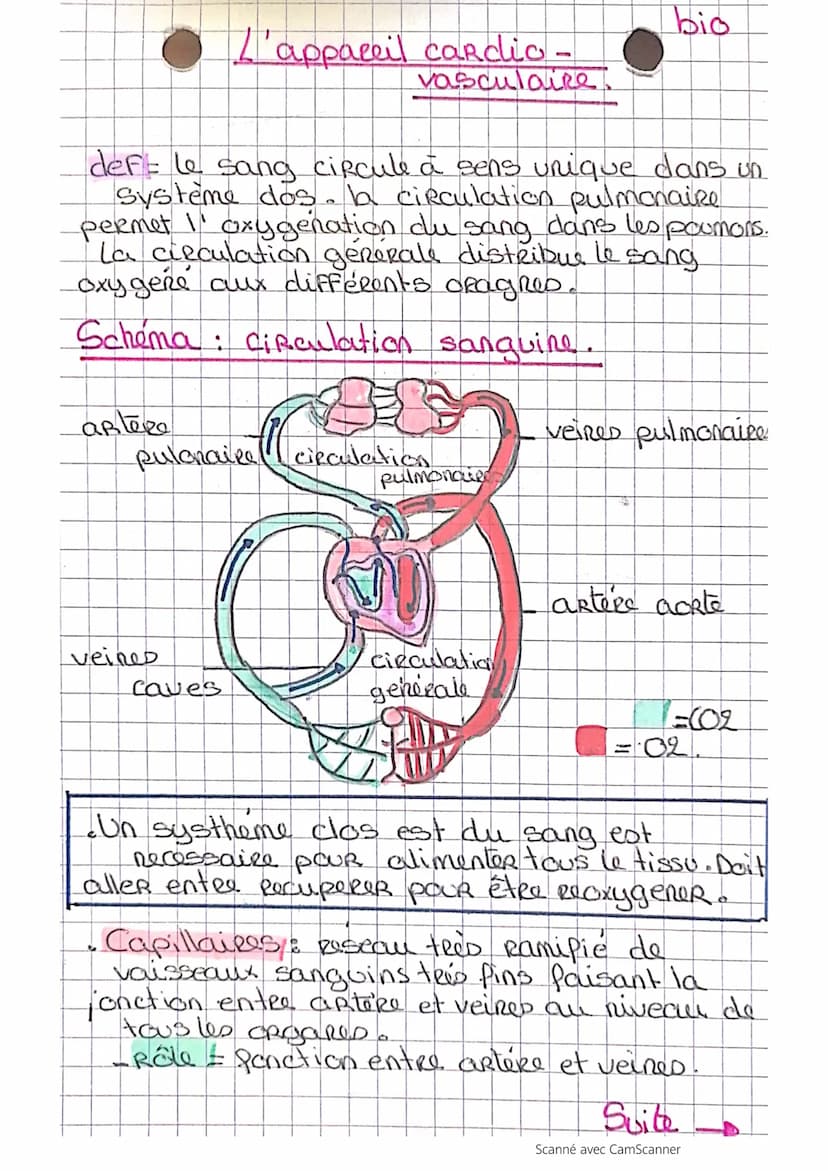 bio
L'appareil cardio-
vasculaire.
def= le sang circule à sens unique dans un
système clos. la circulation pulmonaire
permet l'oxygénation du sang dans les poumons.
La circulation générale distribue le sang
oxygéné aux différents oragnes.
Schéma : circulation sanguine.
artère
pulonaire
veines pulmonaire
circulation
pulmonaire
artère aorte
veines
caves
circulation
générale
=CO2
= O2.
.Un systhème clos est du sang est
necessaire pour alimenter tous le tissu. Doit
aller entre recuperer pour être reoxygener.
. Capillaires : réseau très ramifié de
vaisseaux sanguins très fins faisant la
jonction entre artère et veines au niveau de
tous les organes.
- Rôle = fonction entre artère et veines.
Suite →
Scanné avec CamScanner